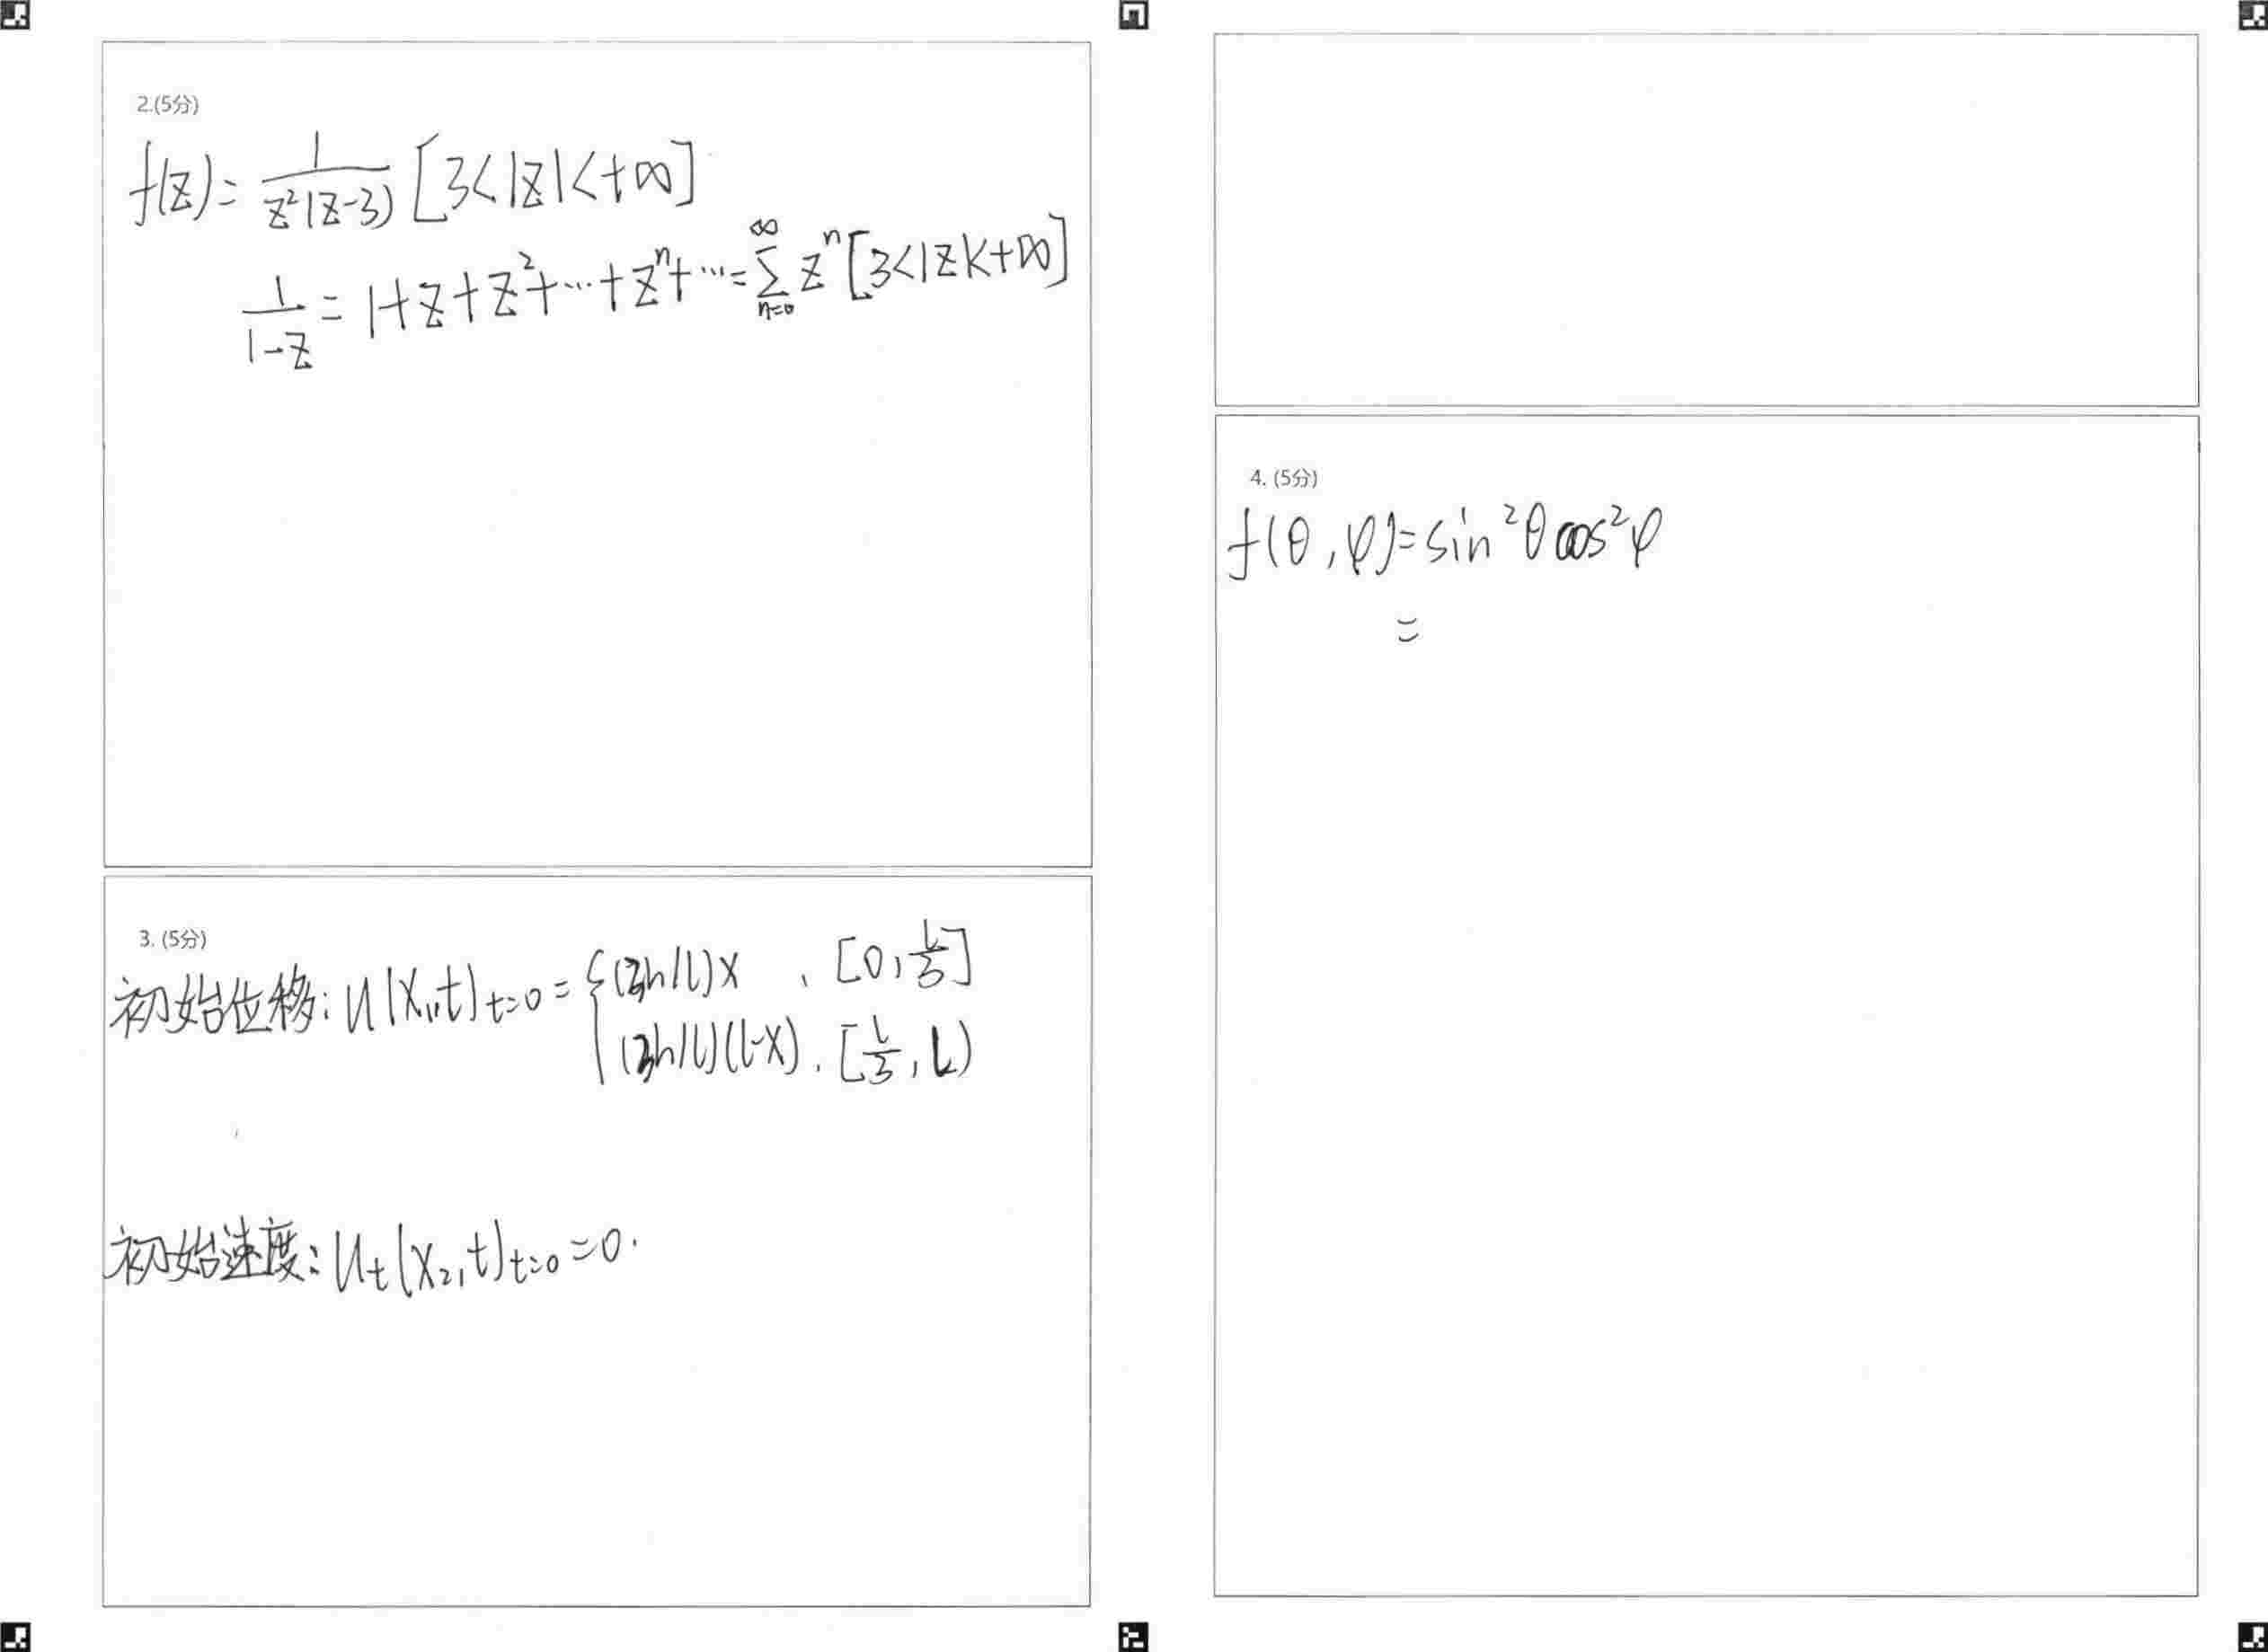 2.(5分)
f(z)= 1/z²(z-3) [3<|z|<+∞]
1/1-z = 1+z+z²+…+zⁿ+…=∑n=0∞ zⁿ[3<|z|<+∞]
3. (5分)
初始位移: u(x₁,t)t=0 = { (3h/l)x , [0, l/3]
(3h/l)(l-x) , [l/3, l)
初始速度: ut(x₂,t)t=0 =0.
4. (5分)
f(θ,φ)=sin²θcos²φ
=